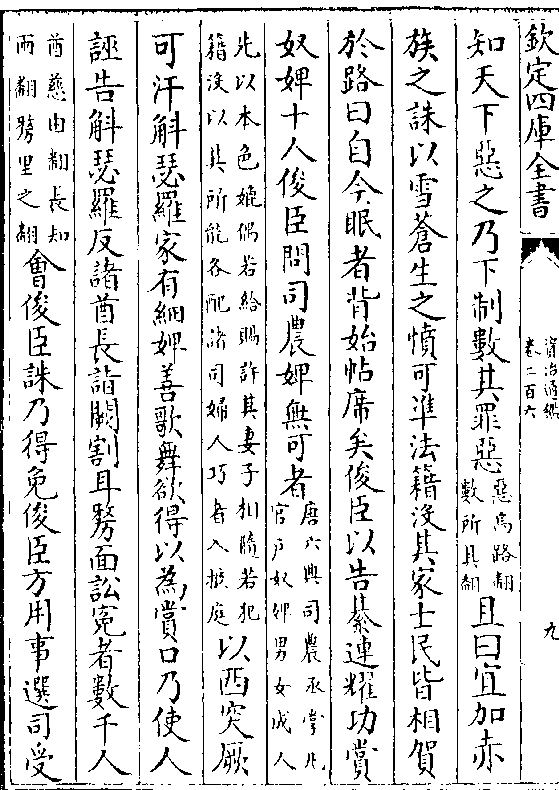 欽定四庫全書
資治通鑑
卷二百六
九
知天下惡之乃下制數其罪惡惡烏路翻數所具翻且曰宜加赤
族之誅以雪蒼生之憤可準法籍没其家士民皆相賀
於路曰自今眠者背始帖席矣俊臣以告綦連耀功賞
奴婢十人俊臣閱司農婢無可者唐六典司農丞掌凡官户奴婢男女成人
先以本色媲偶若給賜許其妻子相隨若犯籍没以其所能各配諸司婦人巧者入掖庭以西突厥
可汗斛瑟羅家有細婢善歌舞欲得以為賞口乃使人
誣告斛瑟羅反諸酋長詣闕割耳剺面訟寃者數千人
酋慈由翻長知兩翻剺里之翻會俊臣誅乃得免俊臣方用事選司受